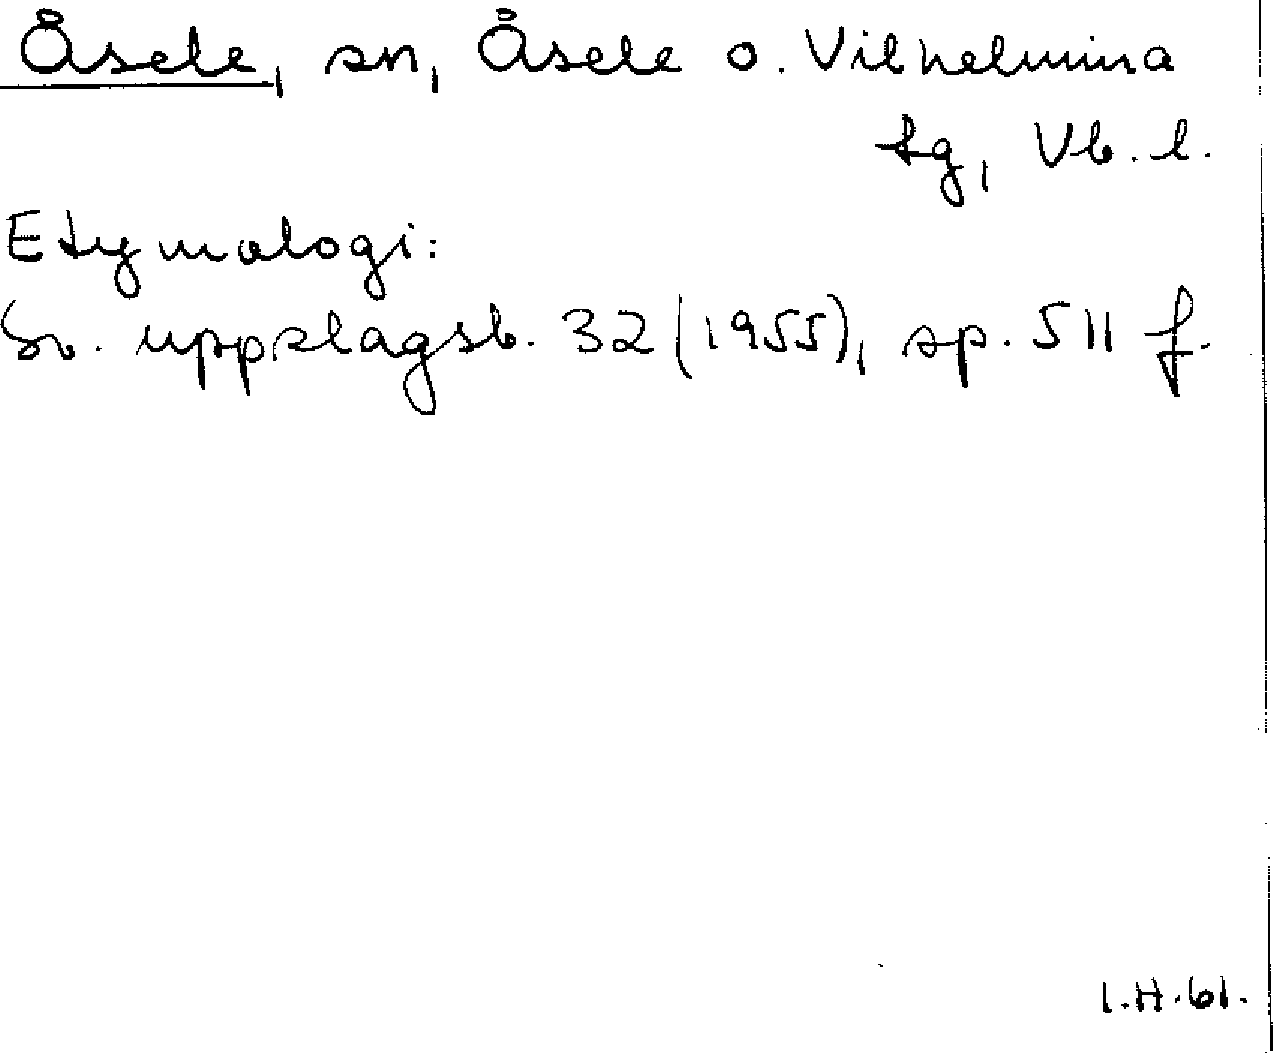 Åsele, sn, Åsele o. Vilhelmina
tg, Vb. l.
Etymologi:
Sv. uppslagsb. 32 (1955), sp. 511 f.
I.H.61.